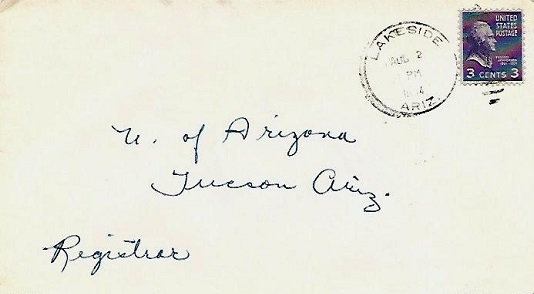 LAKESIDE
AUG 2
PM
ARIZ.
UNITED
STATES
POSTAGE
3 CENTS 3
U. of Arizona
Tucson Ariz.
Registrar